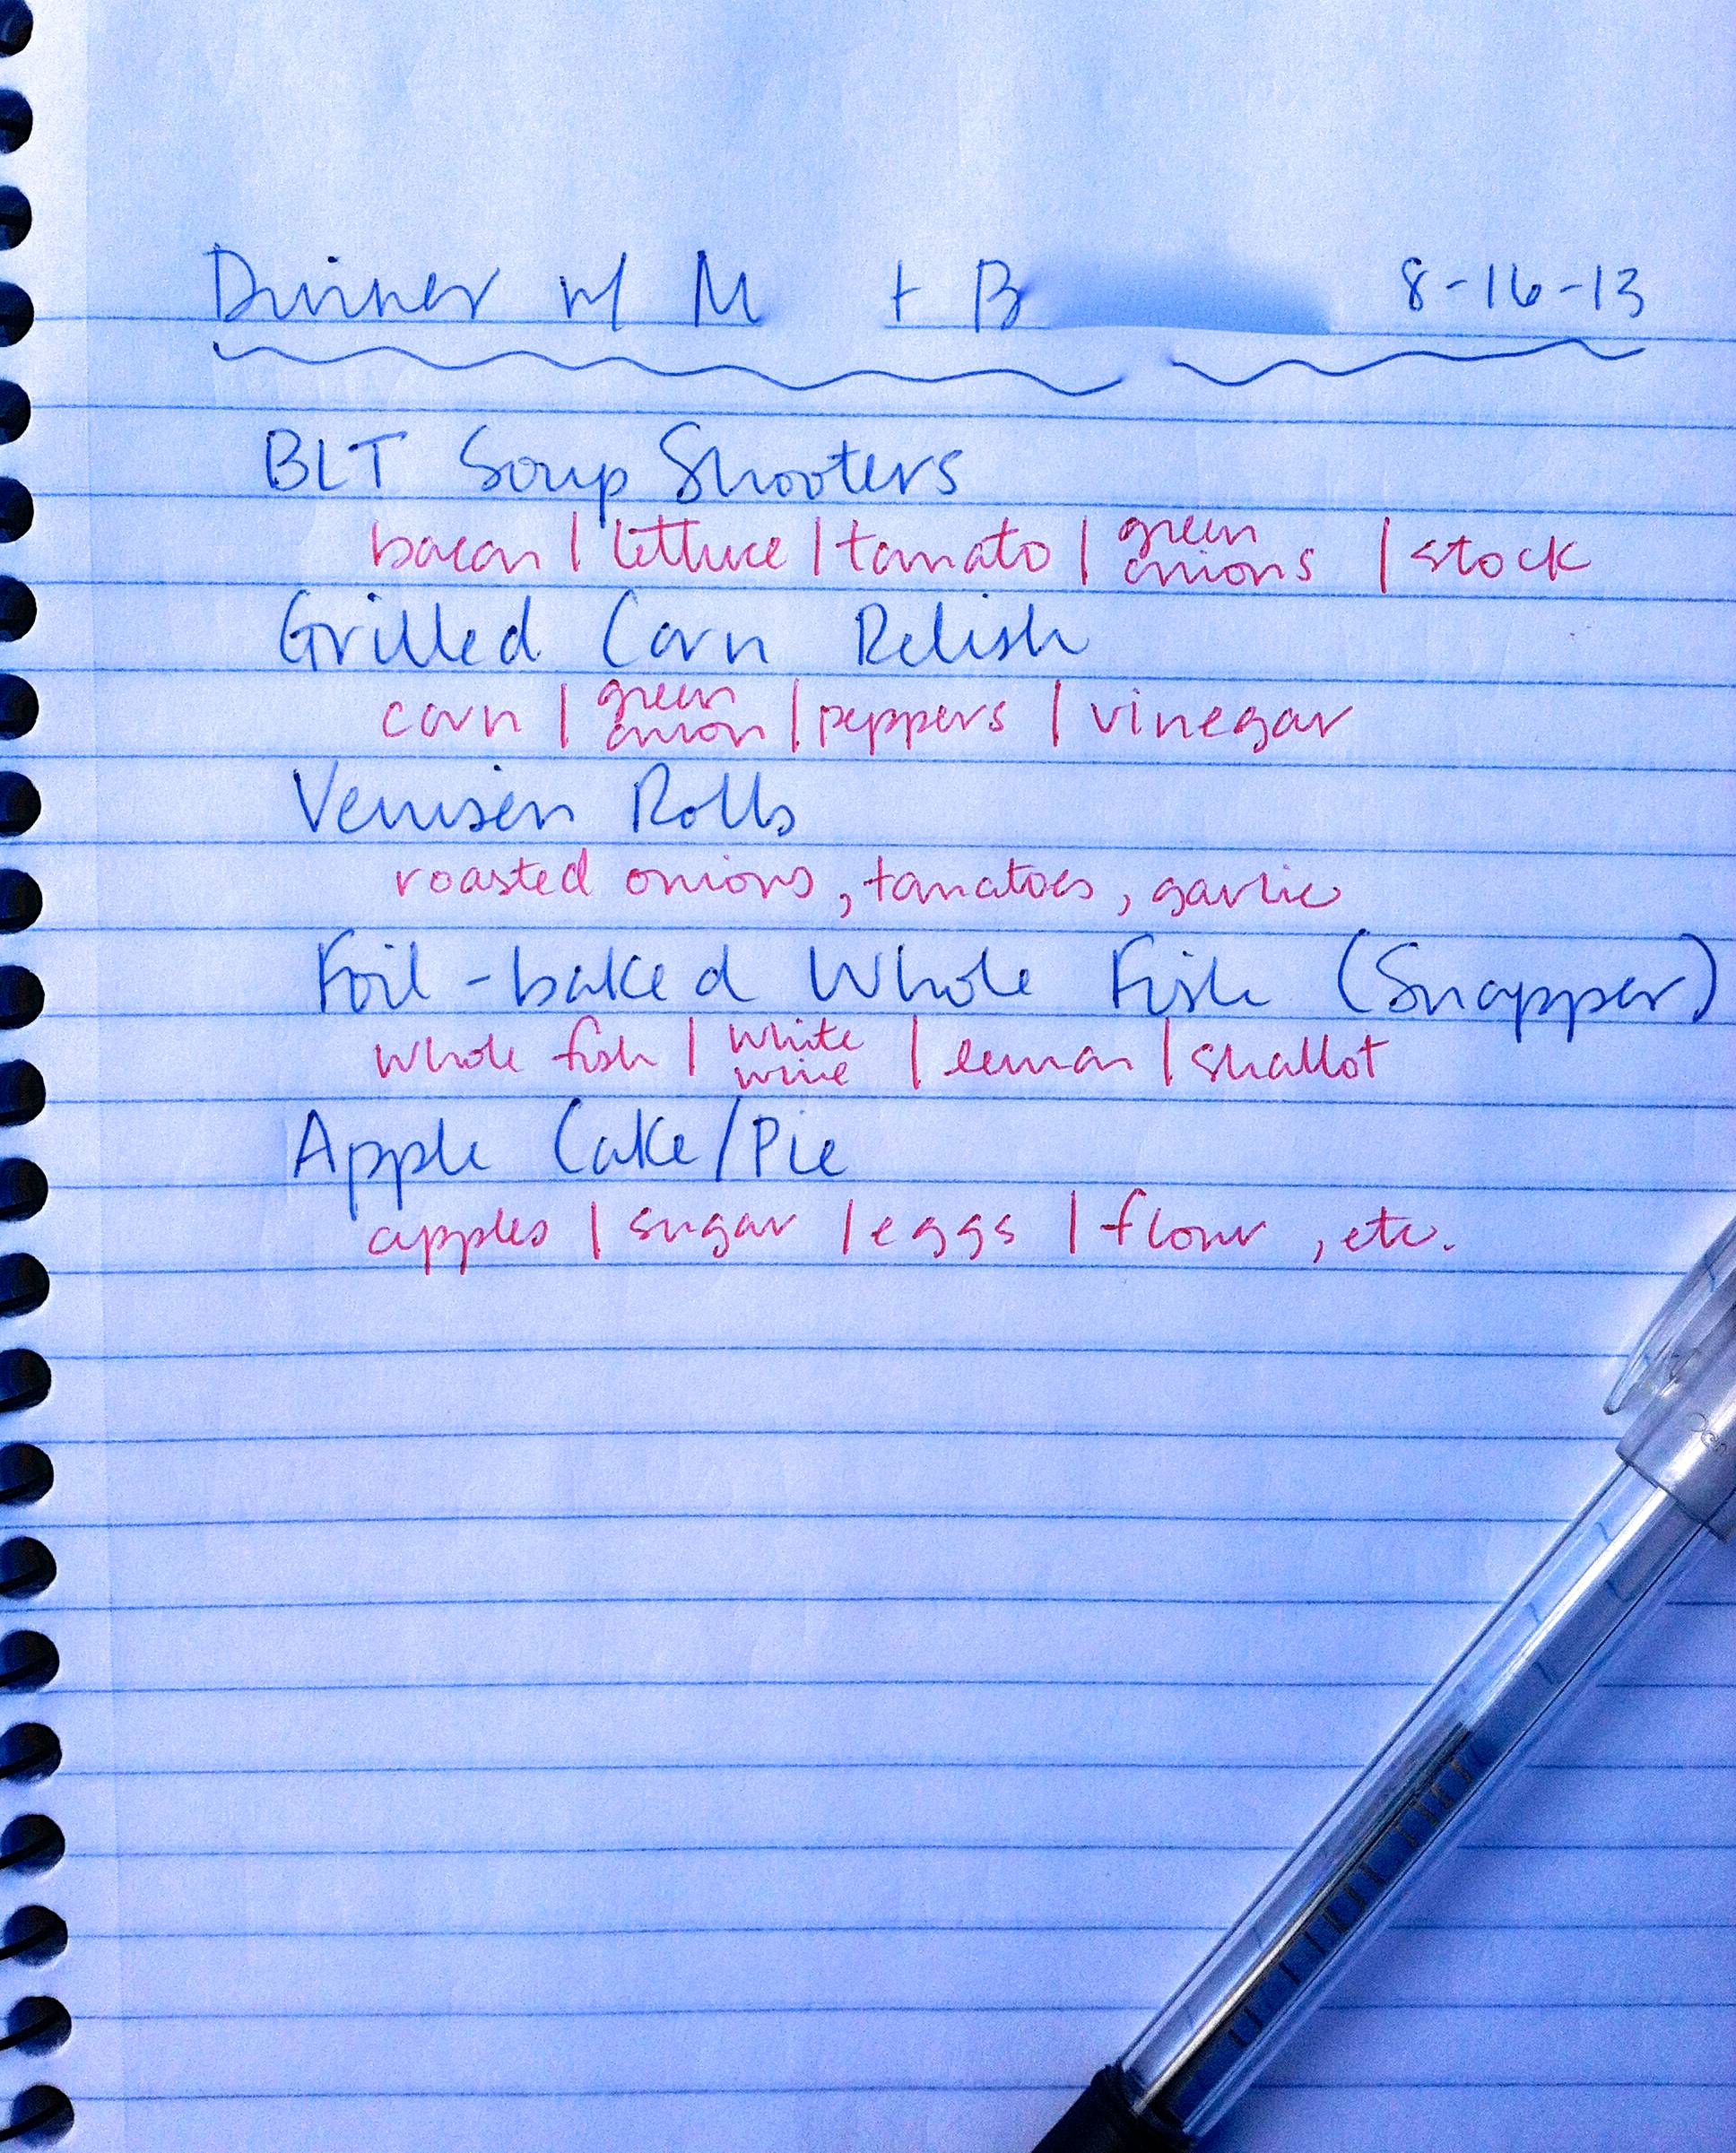 Dinner w/ M + B 8-16-13
BLT Soup Shooters
bacon | lettuce | tomato | green onions | stock
Grilled Corn Relish
corn | green onion | peppers | vinegar
Venisen Rolls
roasted onions, tomatoes, garlic
Foil-baked Whole Fish (Snapper)
whole fish | white wine | lemon | shallot
Apple Cake/Pie
apples | sugar | eggs | flour, etc.